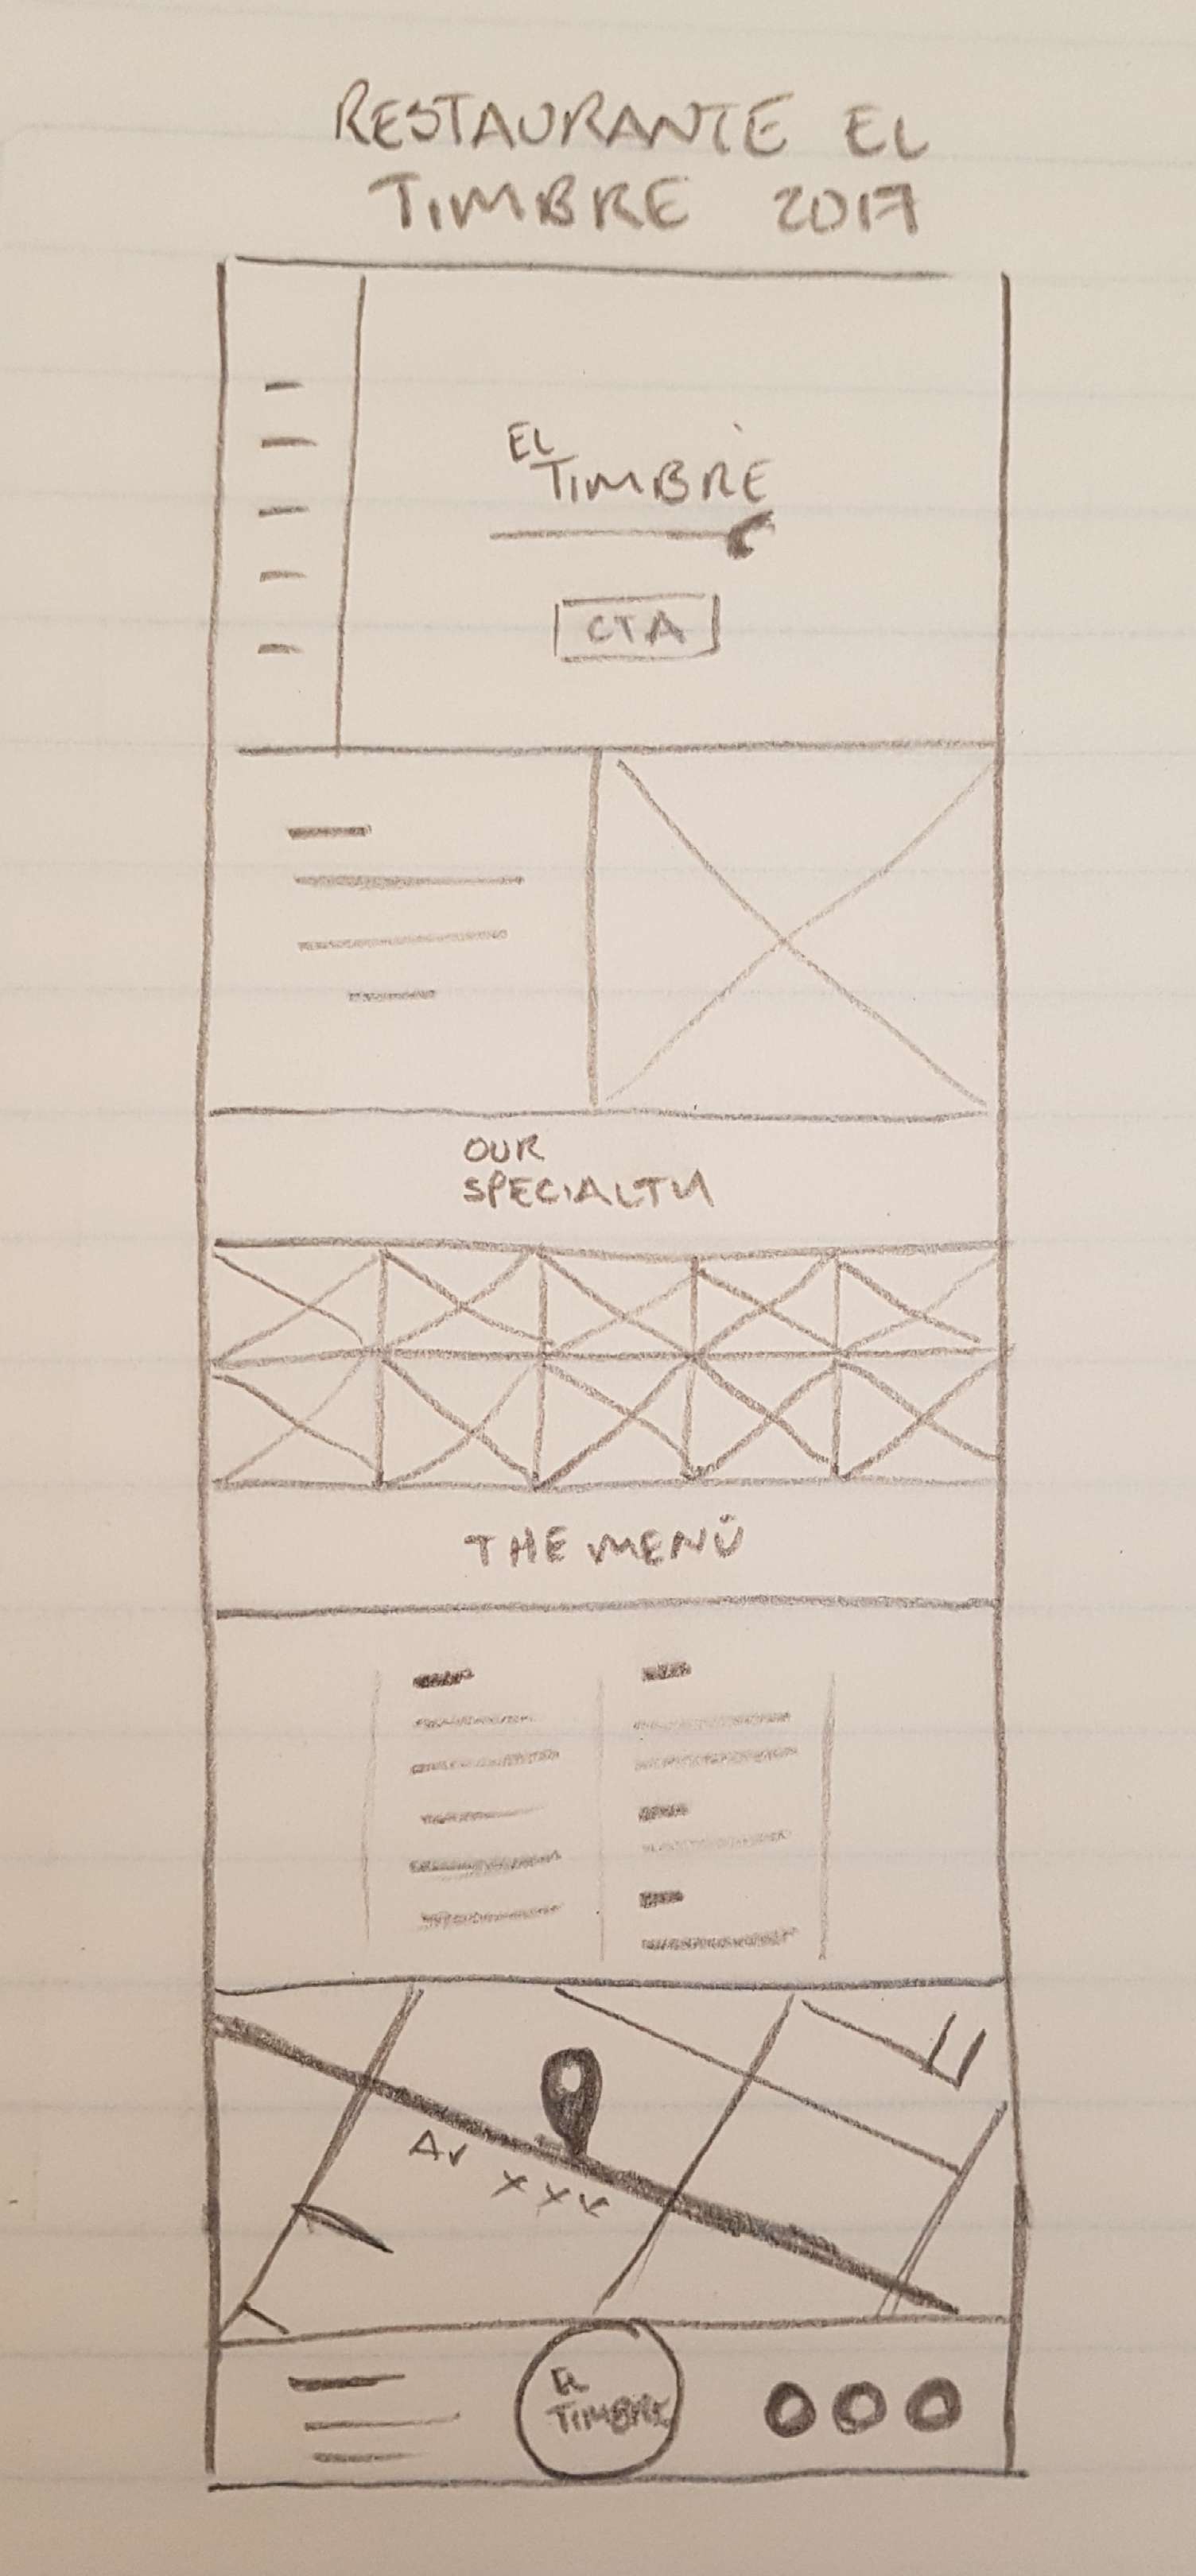 RESTAURANTE EL
TIMBRE 2017
EL
TIMBRE
CTA
OUR
SPECIALTY
THE MENÜ
Av XXX
EL
TIMBRE